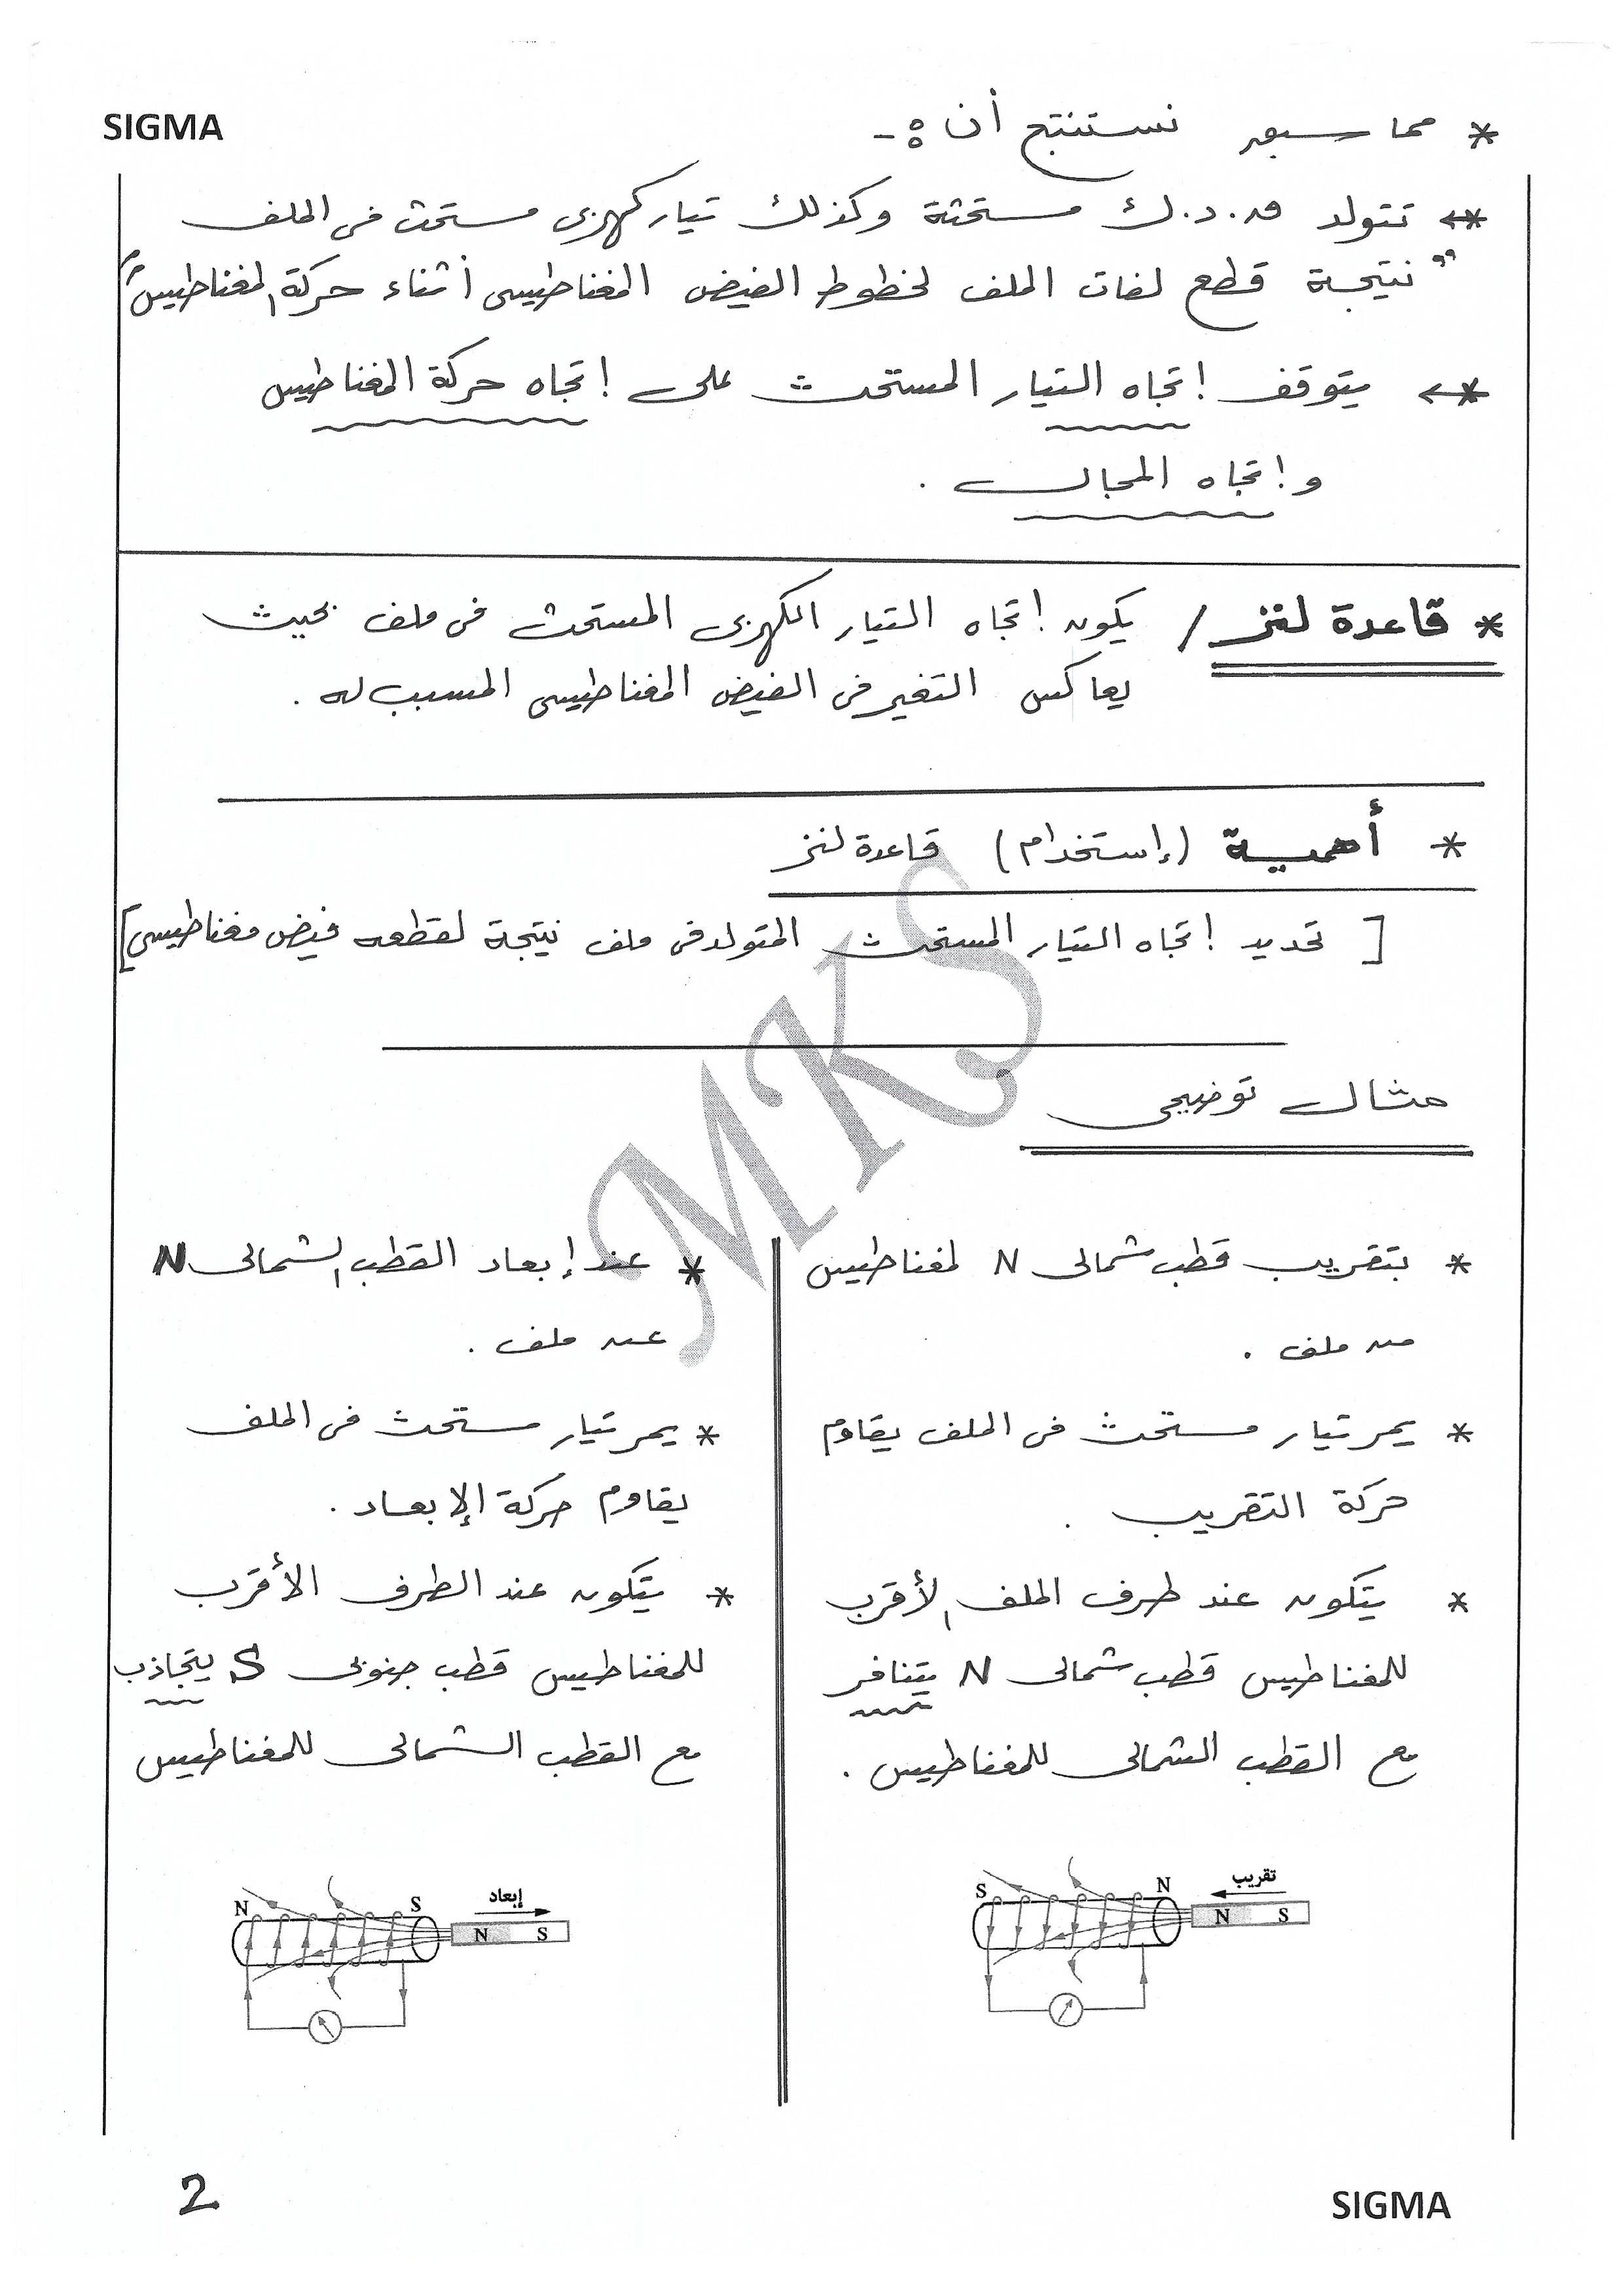 SIGMA
* مما سبق نستنتج أن :-
* تتولد ق.د.ك مستحثة وكذلك تيار كهربى مستحث فى الملف
"نتيجة قطع لفات الملف لخطوط الفيض المغناطيسى أثناء حركة المغناطيس"
* يتوقف إتجاه التيار المستحث على إتجاه حركة المغناطيس
وإتجاه المجال .
* قاعدة لنز / يكون إتجاه التيار الكهربى المستحث فى ملف بحيث
يعاكس التغير فى الفيض المغناطيسى المسبب له .
* أهمية (إستخدام) قاعدة لنز
[ تحديد إتجاه التيار المستحث المتولد فى ملف نتيجة لقطعه فيض مغناطيسي ]
مثال توضيحى
* بتقريب قطب شمالى N لمغناطيس
من ملف .
* يمر تيار مستحث فى الملف يقاوم
حركة التقريب .
* يتكون عند طرف الملف الأقرب
للمغناطيس قطب شمالى N يتنافر
مع القطب الشمالى للمغناطيس .
تقريب
S N
N S
* عند إبعاد القطب الشمالى N
عن ملف .
* يمر تيار مستحث فى الملف
يقاوم حركة الإبعاد .
* يتكون عند الطرف الأقرب
للمغناطيس قطب جنوبى S يتجاذب
مع القطب الشمالى للمغناطيس
إبعاد
N S
N S
MKS
2
SIGMA